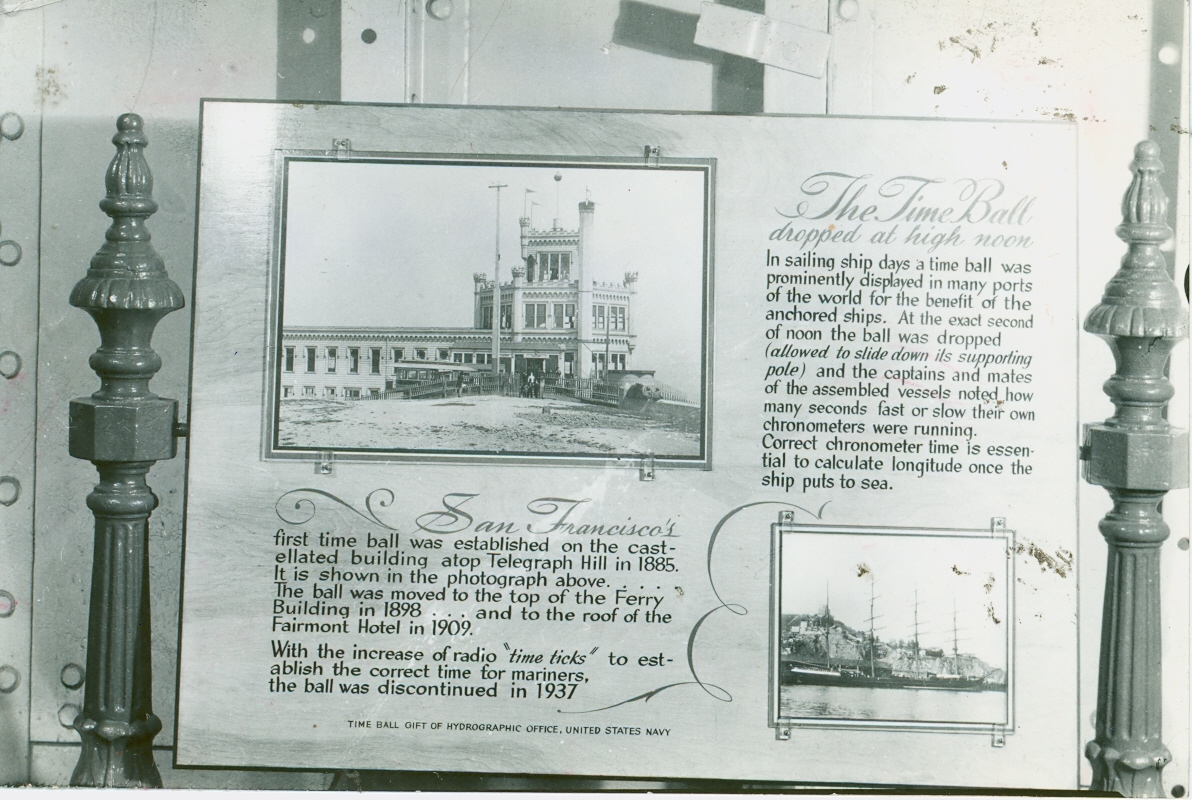 The Time Ball
dropped at high noon
In sailing ship days a time ball was
prominently displayed in many ports
of the world for the benefit of the
anchored ships. At the exact second
of noon the ball was dropped
(allowed to slide down its supporting
pole) and the captains and mates
of the assembled vessels noted how
many seconds fast or slow their own
chronometers were running.
Correct chronometer time is essen-
tial to calculate longitude once the
ship puts to sea.
San Francisco's
first time ball was established on the cast-
ellated building atop Telegraph Hill in 1885.
It is shown in the photograph above. . . . .
The ball was moved to the top of the Ferry
Building in 1898 . . . and to the roof of the
Fairmont Hotel in 1909.
With the increase of radio "time ticks" to est-
ablish the correct time for mariners,
the ball was discontinued in 1937
TIME BALL GIFT OF HYDROGRAPHIC OFFICE, UNITED STATES NAVY